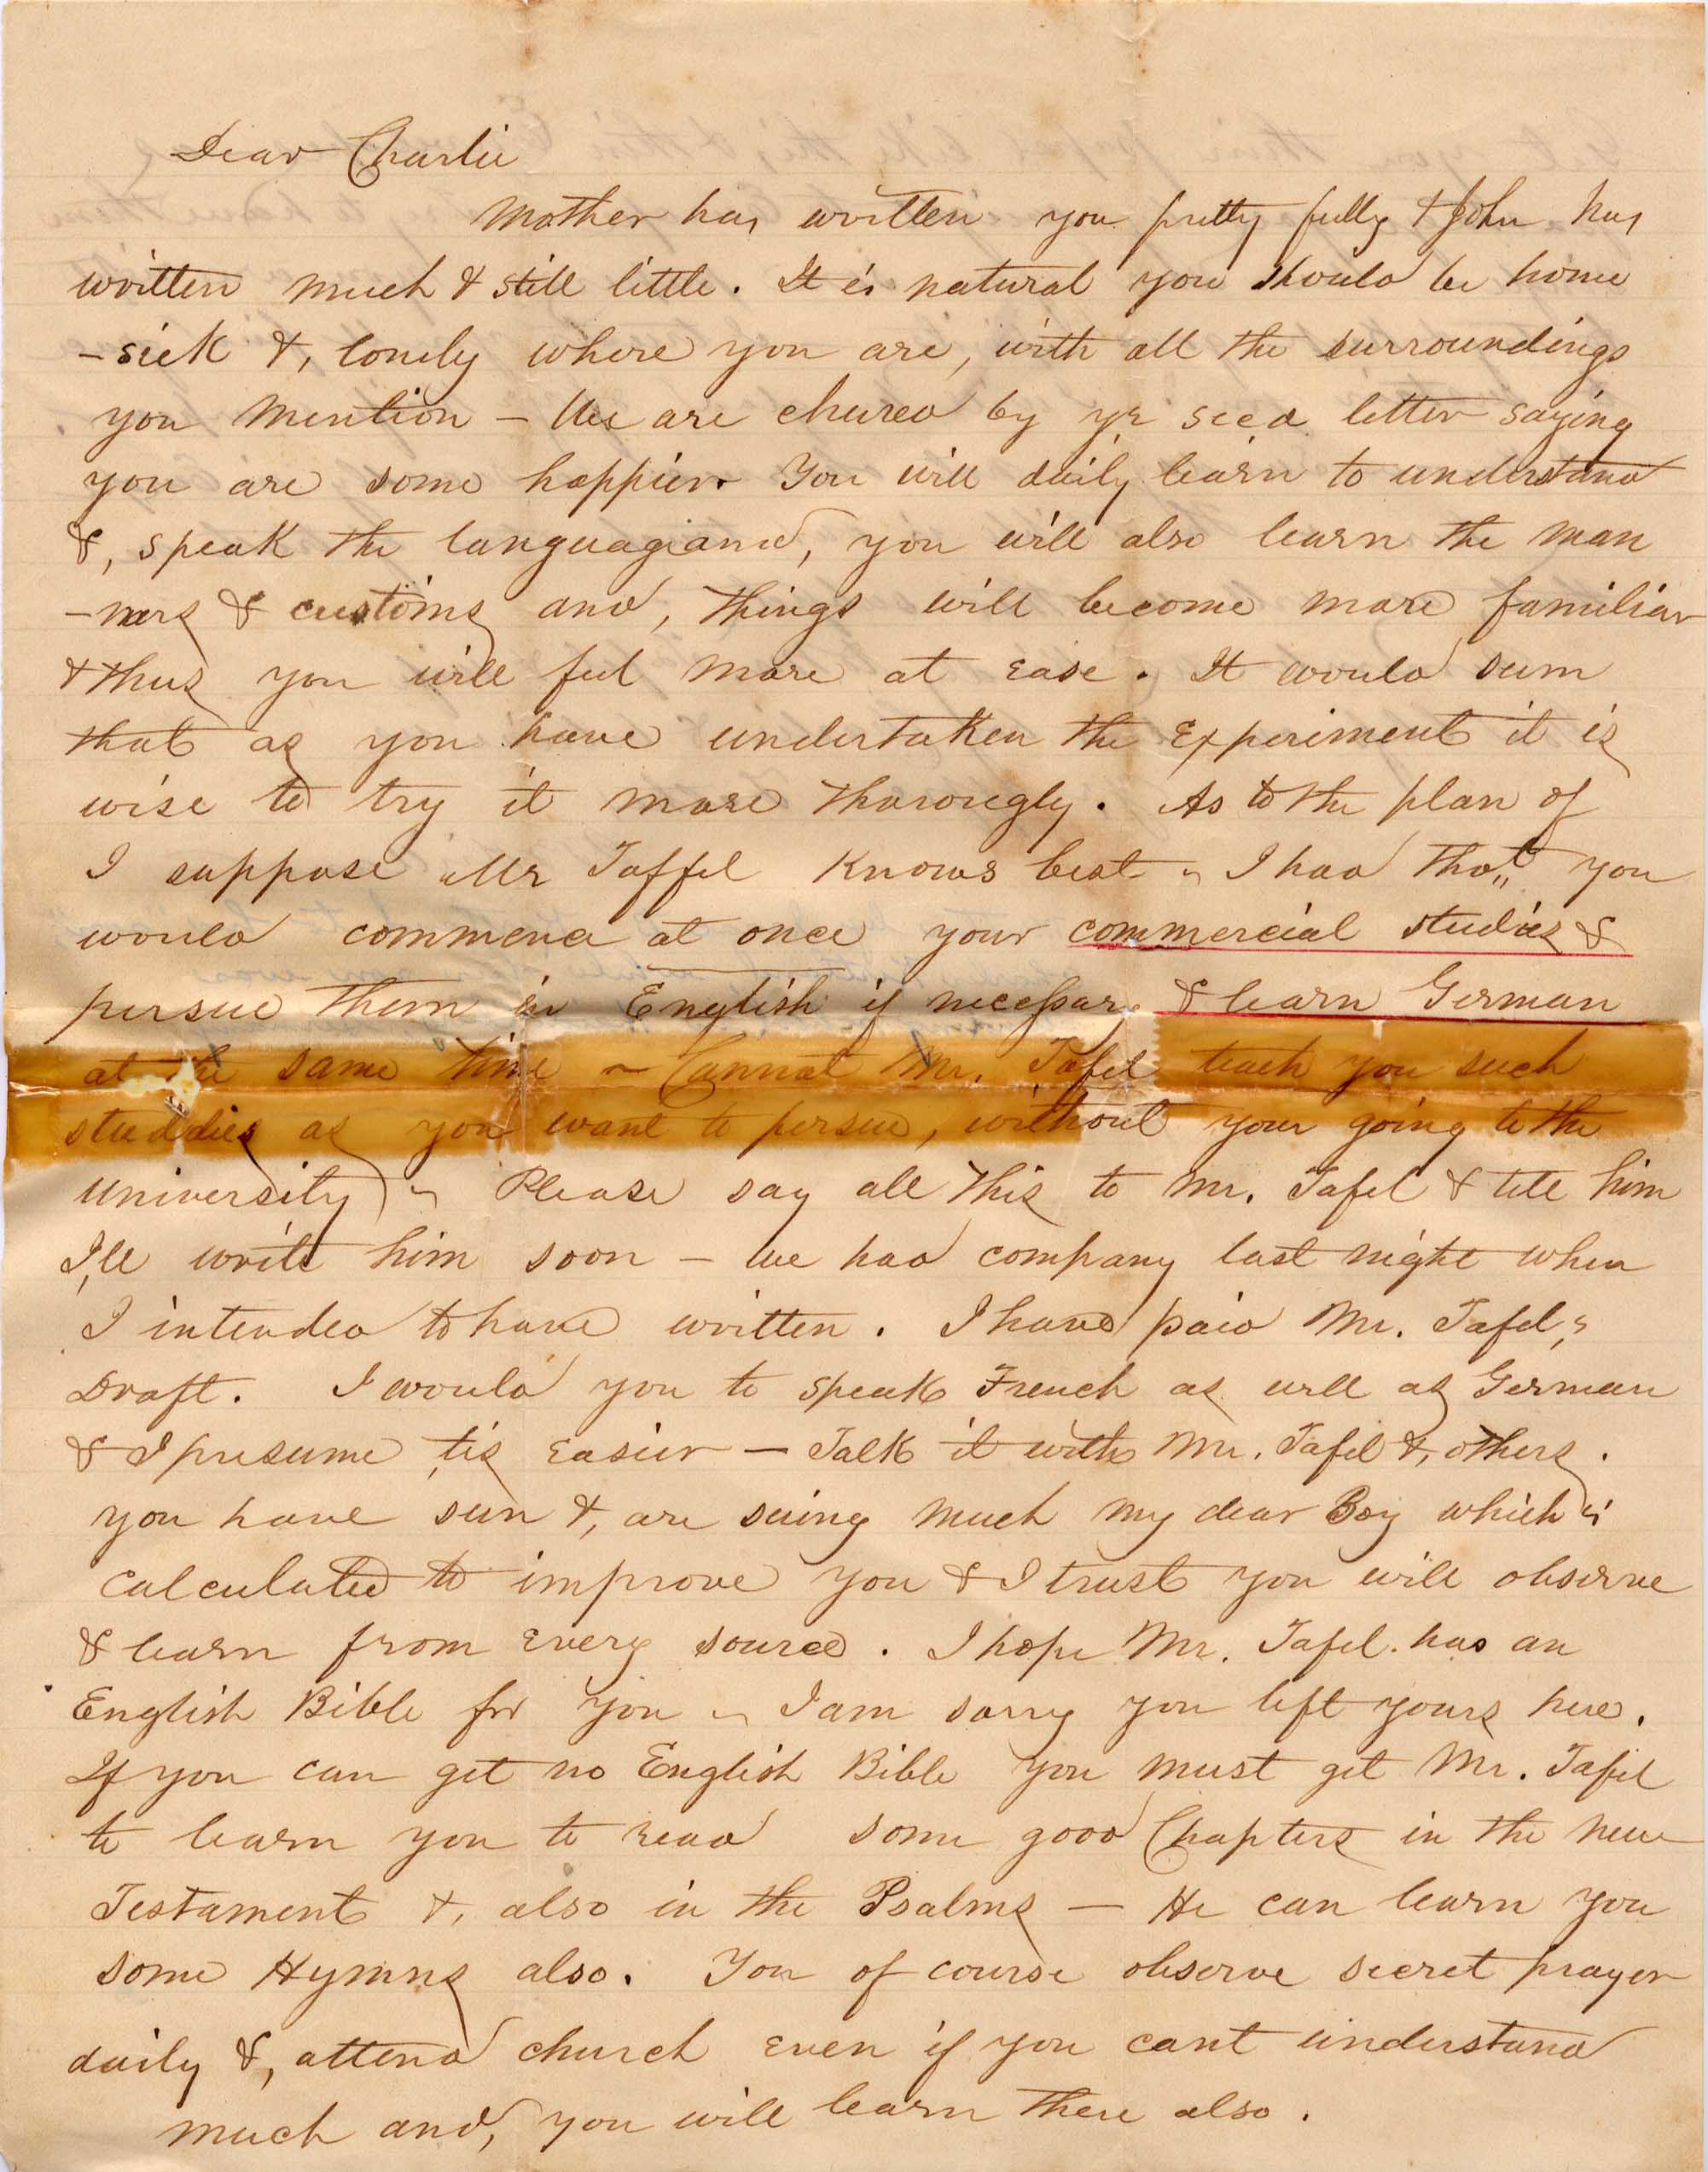 Dear Charlie
Mother has written you pretty fully & John has
written much & still little. It is natural you should be home
-sick &, lonely where you are, with all the surroundings
you mention – We are cheered by yr letter saying
you are some happier. You will daily learn to understand
&, speak the language and, you will also learn the man
-ners & customs and, things will become more familiar
& thus you will feel more at ease. It would seem
that as you have undertaken the Experiment it is
wise to try it more thorougly. As to the plan of
I suppose Mr Taffel Knows best ~ I had tho't you
would commence at once your commercial studies &
persue them in English if necessary & learn German
at the same time ~ Cannot Mr. Tafel teach you such
studdies as you want to persue, without your going to the
University ~ Please say all this to Mr. Tafel & tell him
I,ll write him soon – We had company last night when
I intended to have written. I have paid Mr. Tafel,s
Draft. I would you to speak French as well as German
& I presume ,tis easier – Talk it with Mr. Tafel &, others.
you have seen &, are seeing much my dear Boy which is
calculated to improve you & I trust you will observe
& learn from every source. I hope Mr. Tafel has an
English Bible for you ~ I am sorry you left yours here.
If you can get no English Bible you must get Mr. Tafel
to learn you to read some good Chapters in the New
Testament &, also in the Psalms – He can learn you
some Hymns also. You of course observe secret prayer
daily &, attend church even if you cant understand
much and, you will learn there also.